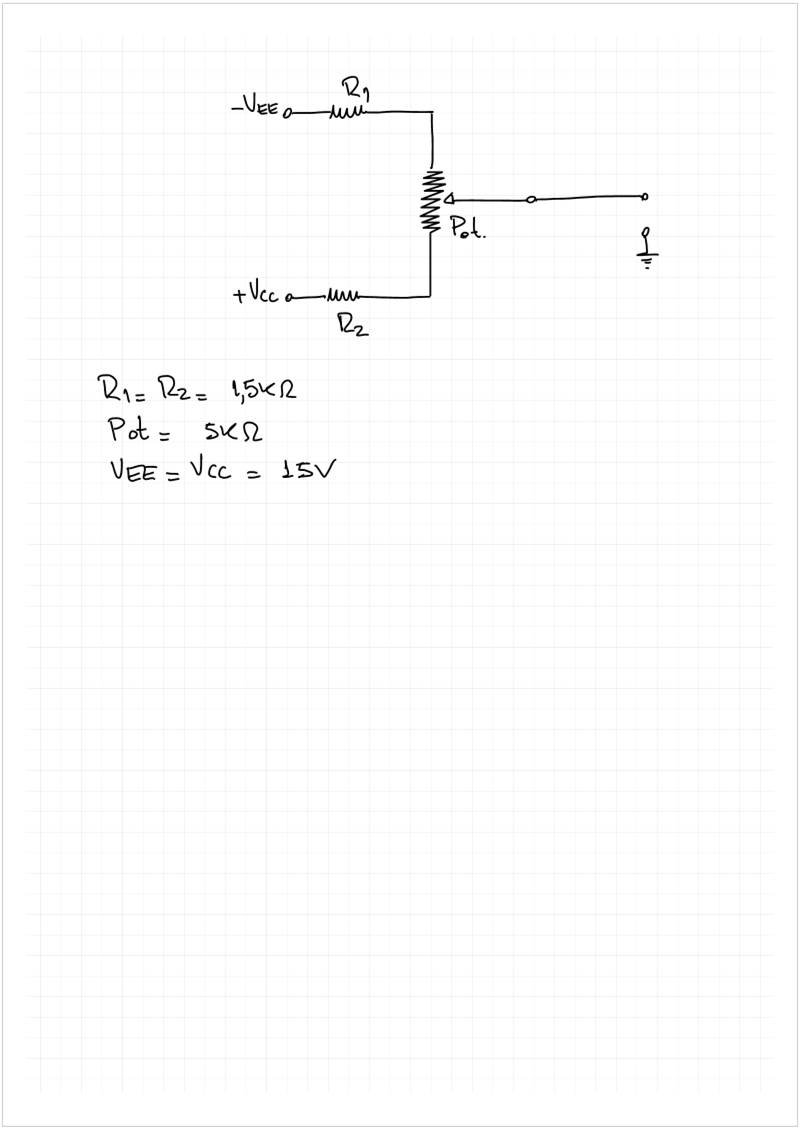 R1
-VEE
Pot.
+Vcc
R2
R1 = R2 = 1,5KΩ
Pot = 5KΩ
VEE = VCC = 15V